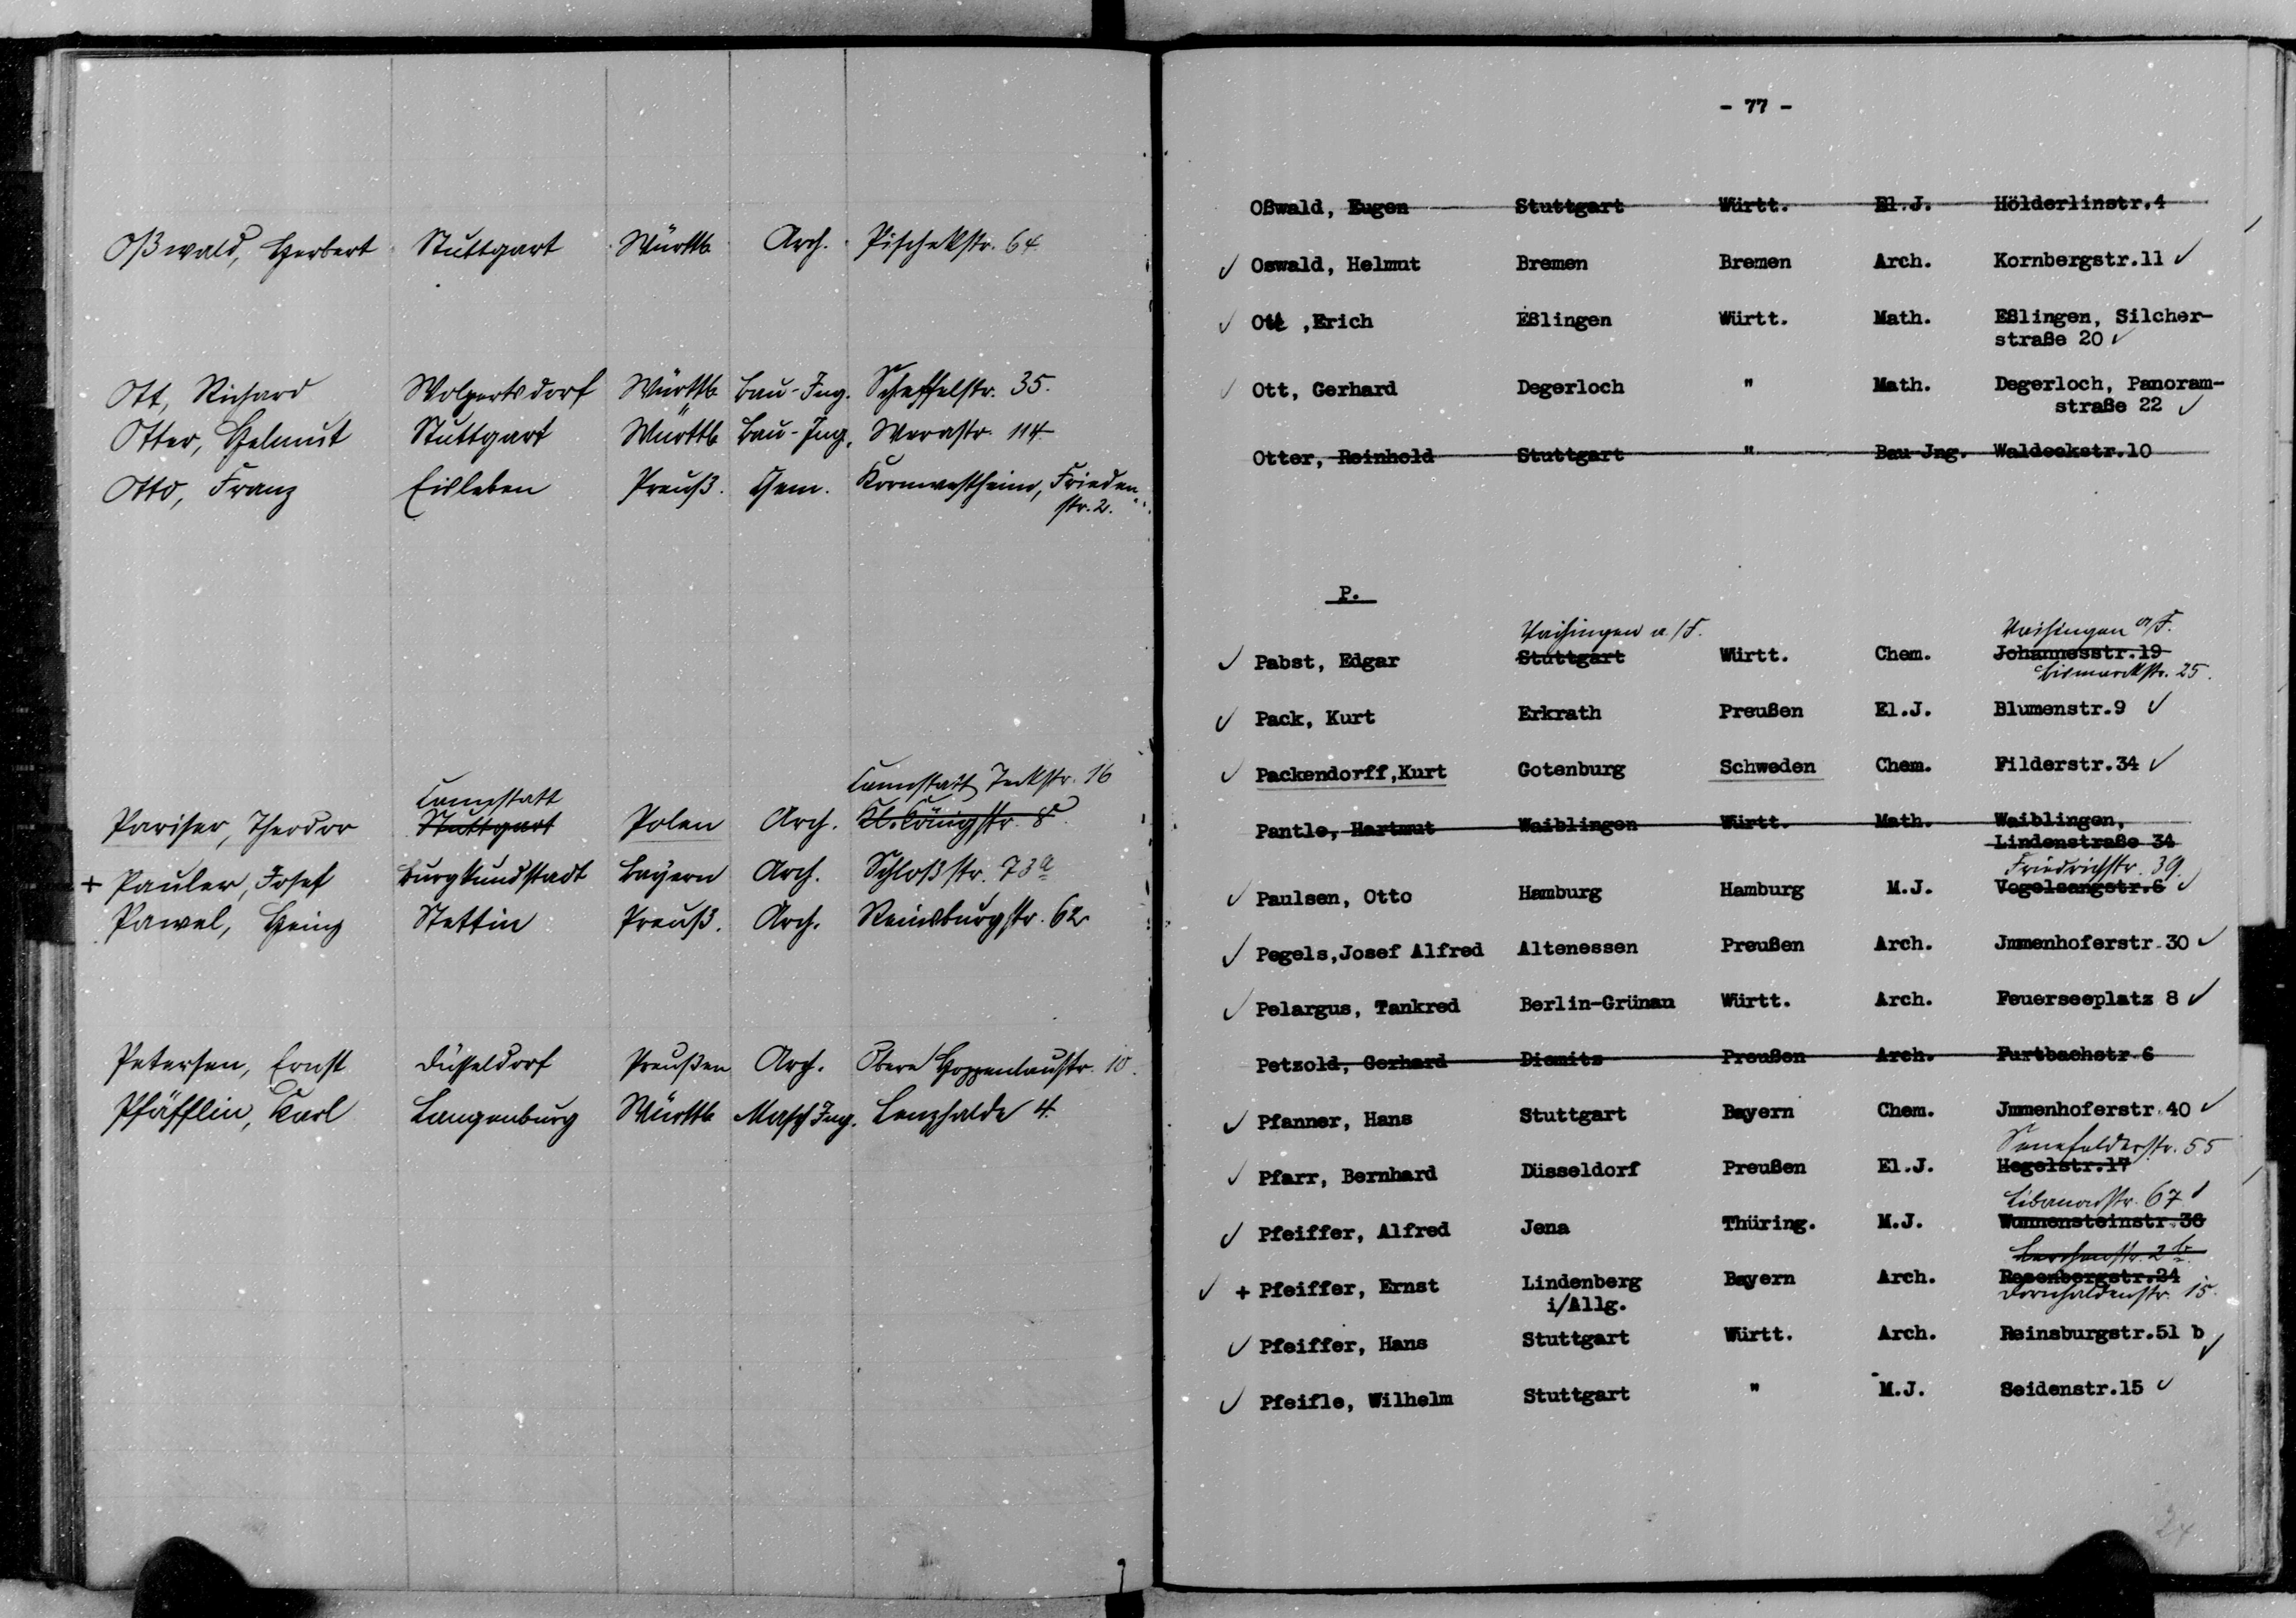 Oßwald, Herbert Stuttgart Württb Arch. Pischekstr. 64
Ott, Richard Wolpertsdorf Württb Bau-Ing. Scheffelstr. 35.
Otter, Helmut Stuttgart Württb Bau-Ing. Werastr. 114
Otto, Franz Eisleben Preuß. Chem. Kornwestheim, Frieden-
str. 2.
Cannstatt Cannstatt Teckstr. 16
Pariser, Theodor Stuttgart Polen Arch. Kl. Königstr. 8
+ Pauler, Josef Burgkundstadt Bayern Arch. Schloßstr. 73a
Pawel, Heinz Stettin Preuß. Arch. Reinsburgstr. 62
Petersen, Ernst Düsseldorf Preußen Arch. Obere Hoppenlaustr. 10.
Pfäfflin, Karl Langenburg Württb Masch Ing. Lenzhalde 4.
- 77 -
Oßwald, Eugen Stuttgart Württ. El.J. Hölderlinstr.4
✓ Oswald, Helmut Bremen Bremen Arch. Kornbergstr.11 ✓
✓ Ott ,Erich Eßlingen Württ. Math. Eßlingen, Silcher-
straße 20 ✓
✓ Ott, Gerhard Degerloch " Math. Degerloch, Panoram-
straße 22 ✓
Otter, Reinhold Stuttgart " Bau Jng. Waldeckstr.10
P.
Vaihingen a/F. Vaihingen a/F.
✓ Pabst, Edgar Stuttgart Württ. Chem. Johannesstr.19
Bismarckstr. 25.
✓ Pack, Kurt Erkrath Preußen El.J. Blumenstr.9 ✓
✓ Packendorff,Kurt Gotenburg Schweden Chem. Filderstr.34 ✓
Pantle, Hartmut Waiblingen Württ. Math. Waiblingen,
Lindenstraße 34
Friedrichstr. 39.
✓ Paulsen, Otto Hamburg Hamburg M.J. Vogelsangstr.6 ✓
✓ Pegels,Josef Alfred Altenessen Preußen Arch. Jmmenhoferstr.30 ✓
✓ Pelargus, Tankred Berlin-Grünau Württ. Arch. Feuerseeplatz 8 ✓
Petzold, Gerhard Diemitz Preußen Arch. Furtbachstr.6
✓ Pfanner, Hans Stuttgart Bayern Chem. Jmmenhoferstr.40 ✓
Senefelderstr. 55
✓ Pfarr, Bernhard Düsseldorf Preußen El.J. Hegelstr.17
Libanonstr. 67 ✓
✓ Pfeiffer, Alfred Jena Thüring. M.J. Wunnensteinstr.36
Lerchenstr. 2 b.
✓ + Pfeiffer, Ernst Lindenberg Bayern Arch. Rosenbergstr.24
i/Allg. Dornhaldenstr. 15.
✓ Pfeiffer, Hans Stuttgart Württ. Arch. Reinsburgstr.51 b ✓
✓ Pfeifle, Wilhelm Stuttgart " M.J. Seidenstr.15 ✓